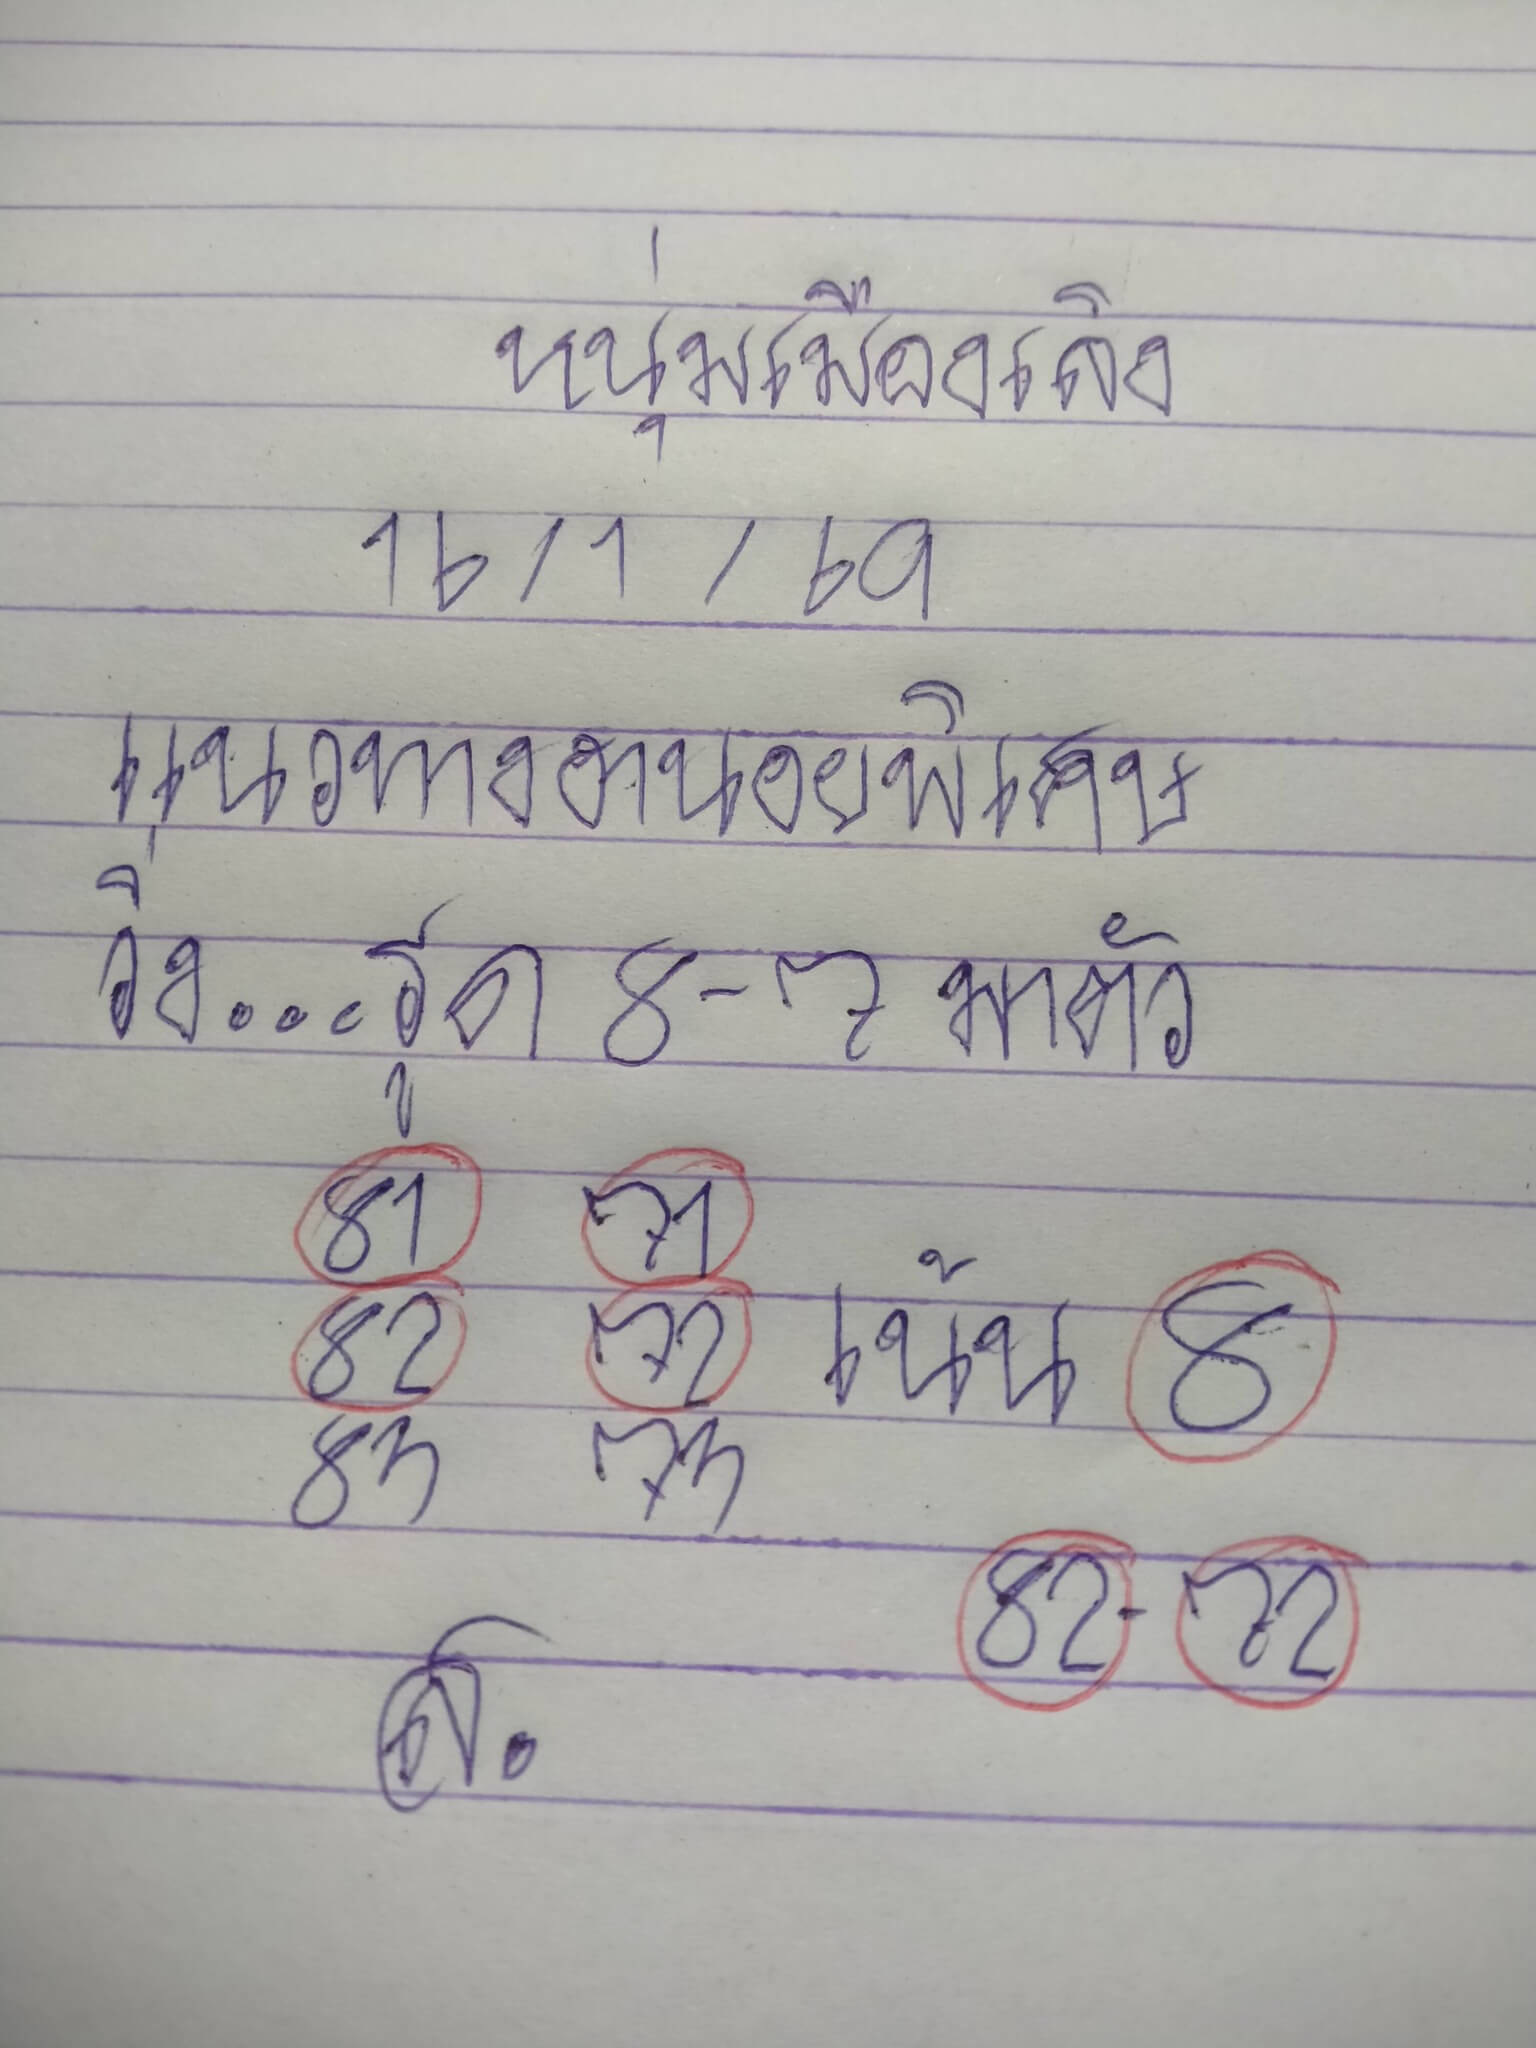 หนุ่มเมืองเลิง
16/1/69
แนวทางฮานอยพิเศษ
วิ่ง...รูด 8-7 มาตัว
81 71
82 72 เน้น 8
83 73
82-72